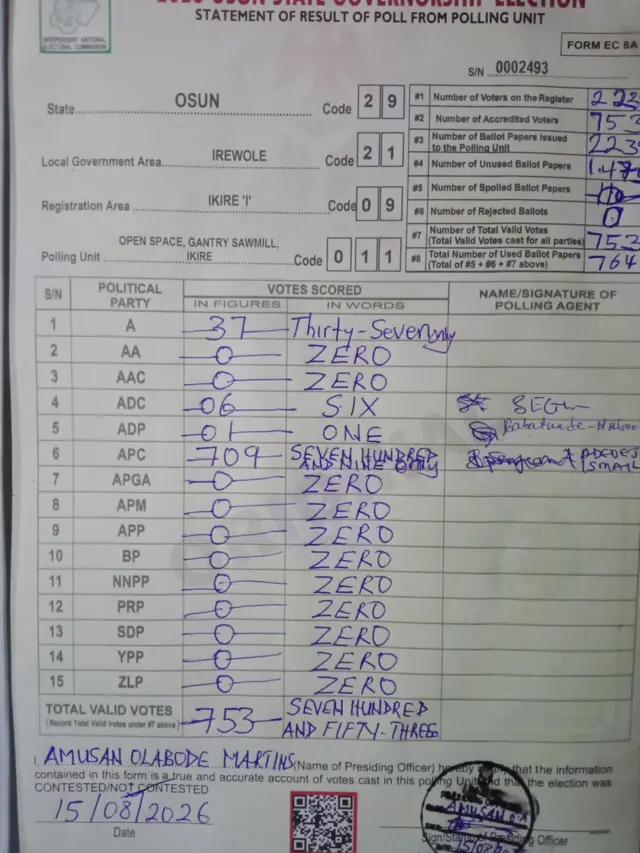 2026 OSUN STATE GOVERNORSHIP ELECTION
STATEMENT OF RESULT OF POLL FROM POLLING UNIT
INDEPENDENT NATIONAL ELECTORAL COMMISSION
FORM EC 8A
S/N 0002493
State OSUN Code 2 9
Local Government Area IREWOLE Code 2 1
Registration Area IKIRE 'I' Code 0 9
Polling Unit OPEN SPACE, GANTRY SAWMILL, IKIRE Code 0 1 1
#1 Number of Voters on the Register
#2 Number of Accredited Voters 753
#3 Number of Ballot Papers Issued to the Polling Unit
#4 Number of Unused Ballot Papers
#5 Number of Spoiled Ballot Papers
#6 Number of Rejected Ballots 0
#7 Number of Total Valid Votes (Total Valid Votes cast for all parties) 753
#8 Total Number of Used Ballot Papers (Total of #5 + #6 + #7 above) 764
S/N POLITICAL PARTY VOTES SCORED NAME/SIGNATURE OF POLLING AGENT
IN FIGURES IN WORDS
1 A 37 Thirty-Seven only
2 AA 0 ZERO
3 AAC 0 ZERO
4 ADC 06 SIX
5 ADP 01 ONE
6 APC 709 SEVEN HUNDRED AND NINE ONLY
7 APGA 0 ZERO
8 APM 0 ZERO
9 APP 0 ZERO
10 BP 0 ZERO
11 NNPP 0 ZERO
12 PRP 0 ZERO
13 SDP 0 ZERO
14 YPP 0 ZERO
15 ZLP 0 ZERO
TOTAL VALID VOTES (Record Total Valid Votes under #7 above) 753 SEVEN HUNDRED AND FIFTY-THREE
I, AMUSAN OLABODE MARTINS (Name of Presiding Officer) hereby that the information
contained in this form is a true and accurate account of votes cast in this polling Unit and that the election was
CONTESTED/NOT CONTESTED
15/08/2026
Date
Sign/Stamp of Presiding Officer